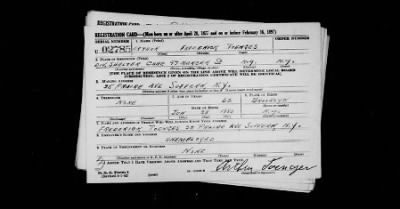 REGISTRATION CARD—(Men born on or after April 28, 1877 and on or before February 16, 1897)
SERIAL NUMBER 1. NAME (Print) ORDER NUMBER
U 02785 ARTHUR FREDERICK TOENGES
2. PLACE OF RESIDENCE (Print)
N.Y. N.Y.
[THE PLACE OF RESIDENCE GIVEN ON THE LINE ABOVE WILL DETERMINE LOCAL BOARD
JURISDICTION; LINE 2 OF REGISTRATION CERTIFICATE WILL BE IDENTICAL]
3. MAILING ADDRESS
35 PRAIRIE AVE SUFFERN, N.Y.
4. TELEPHONE 5. AGE IN YEARS 6. PLACE OF BIRTH
NONE BROOKLYN
DATE OF BIRTH
N.Y.
7. NAME AND ADDRESS OF PERSON WHO WILL ALWAYS KNOW YOUR ADDRESS
FREDERICK TOENGES 35 PRAIRIE AVE SUFFERN, N.Y.
8. EMPLOYER'S NAME AND ADDRESS
UNEMPLOYED
9. PLACE OF EMPLOYMENT OR BUSINESS
NONE
I AFFIRM THAT I HAVE VERIFIED ABOVE ANSWERS AND THAT THEY ARE TRUE.
D. S. S. Form 1
(Revised 4-1-42)
Arthur Toenges